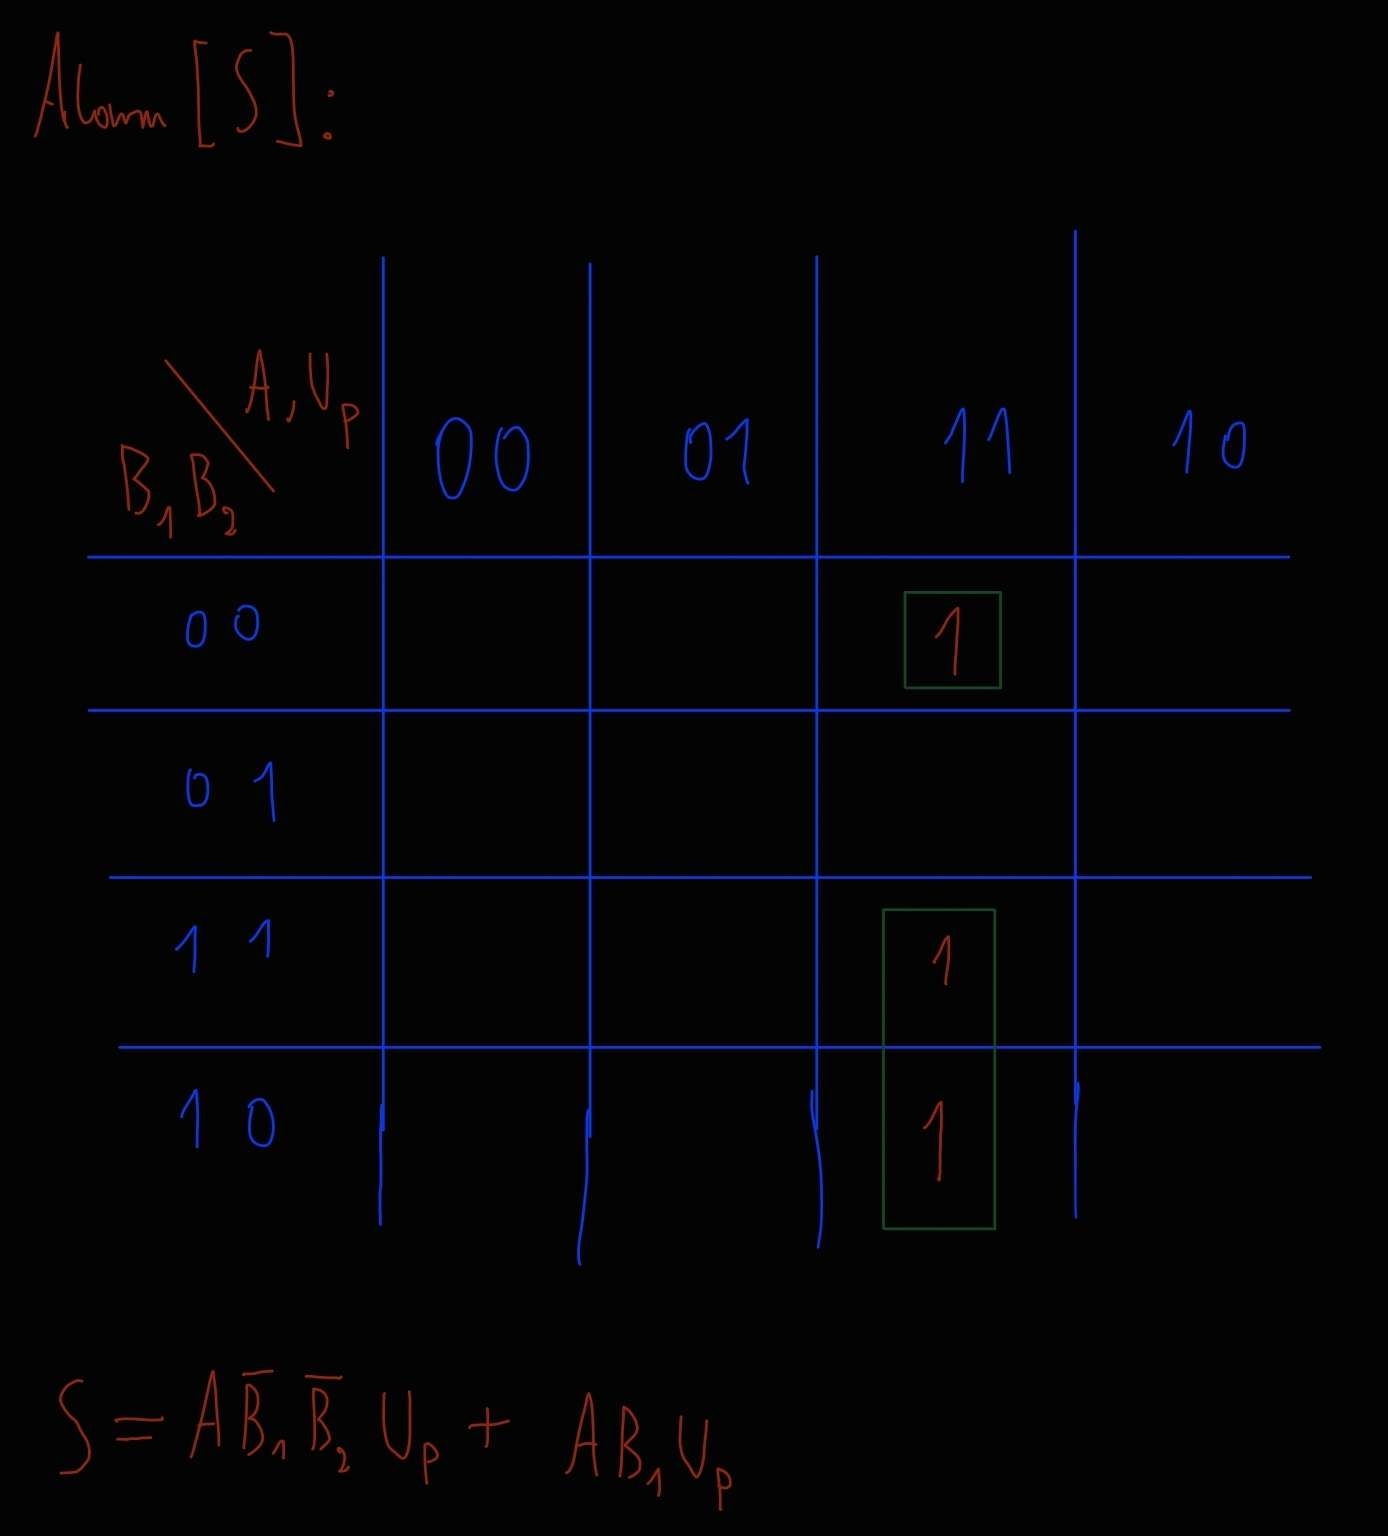 Alarm [S]:
A, Up
B₁ B₂
00 01 11 10
00 1
01
11 1
10 1
S = A B̅₁ B̅₂ Up + A B₁ Up